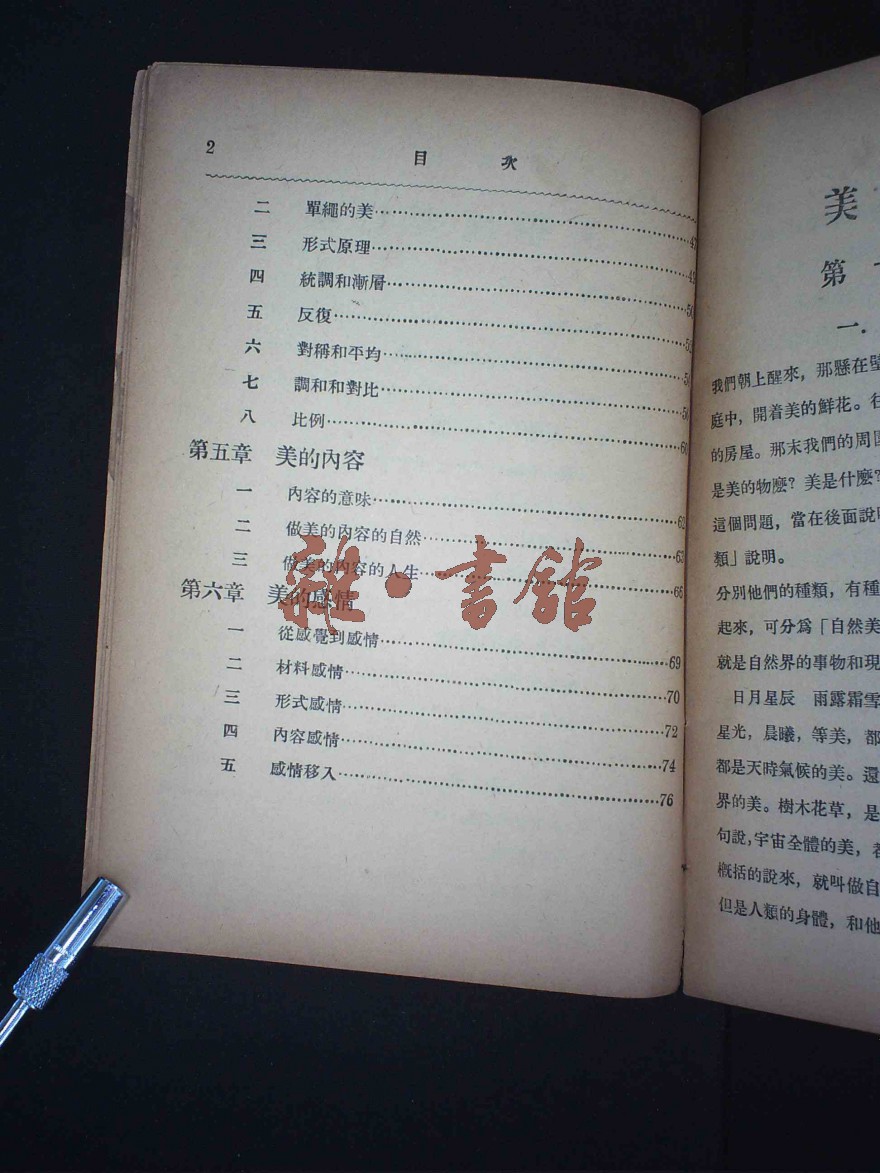 2 目 次
二 單繩的美 47
三 形式原理 49
四 統調和漸層 50
五 反復
六 對稱和平均
七 調和和對比
八 比例 60
第五章 美的內容
一 內容的意味 62
二 做美的內容的自然 63
三 做美的內容的人生 66
第六章 美的感情
一 從感覺到感情 69
二 材料感情 70
三 形式感情 72
四 內容感情 74
五 感情移入 76
雜·書館
美
第
一.
我們朝上醒來，那懸在壁
庭中，開着美的鮮花。往
的房屋。那末我們的周圍
是美的物麼？美是什麼？
這個問題，當在後面說明
類」說明。
分別他們的種類，有種
起來，可分爲「自然美
就是自然界的事物和現
日月星辰 雨露霜雪
星光，晨曦，等美，都
都是天時氣候的美。還
界的美。樹木花草，是
句說，宇宙全體的美，
概括的說來，就叫做自
但是人類的身體，和他